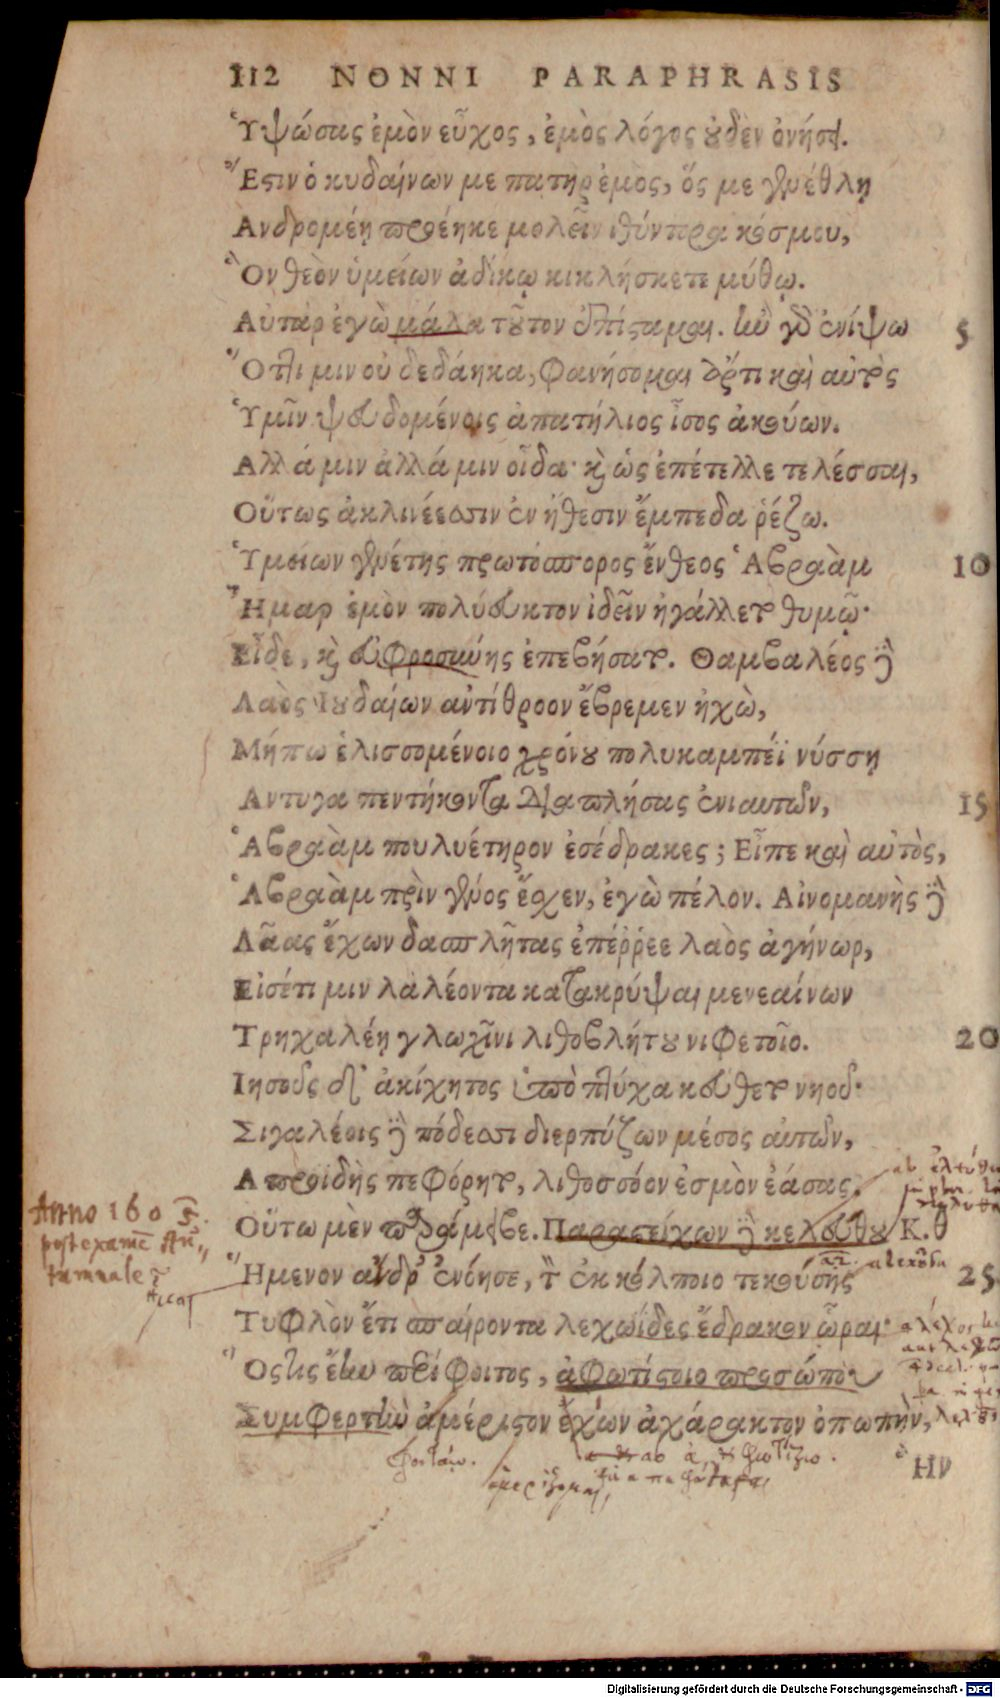 112 NONNI PARAPHRASIS
Ὑψώσας ἐμὸν εὖχος, ἐμὸς λόγος οὐδὲν ὀνήσει.
Ἔστιν ὁ κυδαίνων με πατὴρ ἐμὸς, ὅς με γενέθλῃ
Ανδρομέῃ προέηκε μολεῖν ἰθύντορα κόσμου,
Ὃν θεὸν ὑμείων ἀδίκῳ κικλήσκετε μύθῳ.
Αὐτὰρ ἐγὼ μάλα τοῦτον ἐπίσταμαι. ἢν γὰρ ἐνίψω 5
Ὅτι μιν οὐ δεδάηκα, φανήσομαι ἄρτι καὶ αὐτὸς
Ὑμῖν ψευδομένοις ἀπατήλιος ἶσος ἀκούων.
Αλλά μιν ἀλλά μιν οἶδα· καὶ ὡς ἐπέτελλε τελέσσαι,
Οὕτως ἀκλινέεσσιν ἐν ἤθεσιν ἔμπεδα ῥέζω.
Ὑμείων γενέτης πρωτόσπορος ἔνθεος Ἁβραὰμ 10
Ἦμαρ ἐμὸν πολύευκτον ἰδεῖν ἠγάλλετο θυμῷ·
Εἶδε, καὶ εὐφροσύνης ἐπεβήσατο. Θαμβαλέος δὲ
Λαὸς Ιουδαίων ἀντίθροον ἔβρεμεν ἠχὼ,
Μήπω ἑλισσομένοιο χρόνου πολυκαμπέϊ νύσσῃ
Αντυγα πεντήκοντα διαπλήσας ἐνιαυτῶν, 15
Ἁβραὰμ πουλυέτηρον ἐσέδρακες; Εἶπε καὶ αὐτὸς,
Ἁβραὰμ πρὶν γένος ἔσχεν, ἐγὼ πέλον. Αἰνομανὴς δὲ
Λᾶας ἔχων δασπλῆτας ἐπέῤῥεε λαὸς ἀγήνωρ,
Εἰσέτι μιν λαλέοντα κατακρύψαι μενεαίνων
Τρηχαλέῃ γλωχῖνι λιθοβλήτου νιφετοῖο. 20
Ιησοῦς δ' ἀκίχητος ὑπὸ πτύχα κεύθετο νηοῦ·
Σιγαλέοις δὲ πόδεσσι διερπύζων μέσος αὐτῶν,
Απροϊδὴς πεφόρητο, λιθοσσόον ἑσμὸν ἐάσας.
Οὕτω μὲν παράμειβε. Παραστείχων δὲ κελεύθου Κ.θ
Ἥμενον ἄνδρ' ἐνόησε, τὸν ἐκ κόλποιο τεκούσης 25
Τυφλὸν ἔτι σπαίροντα λεχωΐδες ἔδρακον ὧραι·
Ὅστις ἔην περίφοιτος, ἀφωτίστοιο προσώπου
Συμφερτὴν ἀμέριστον ἔχων ἀχάρακτον ὀπωπὴν,
Ἣν
Anno 160
post exame
φοιτάω.
Digitalisierung gefördert durch die Deutsche Forschungsgemeinschaft - DFG